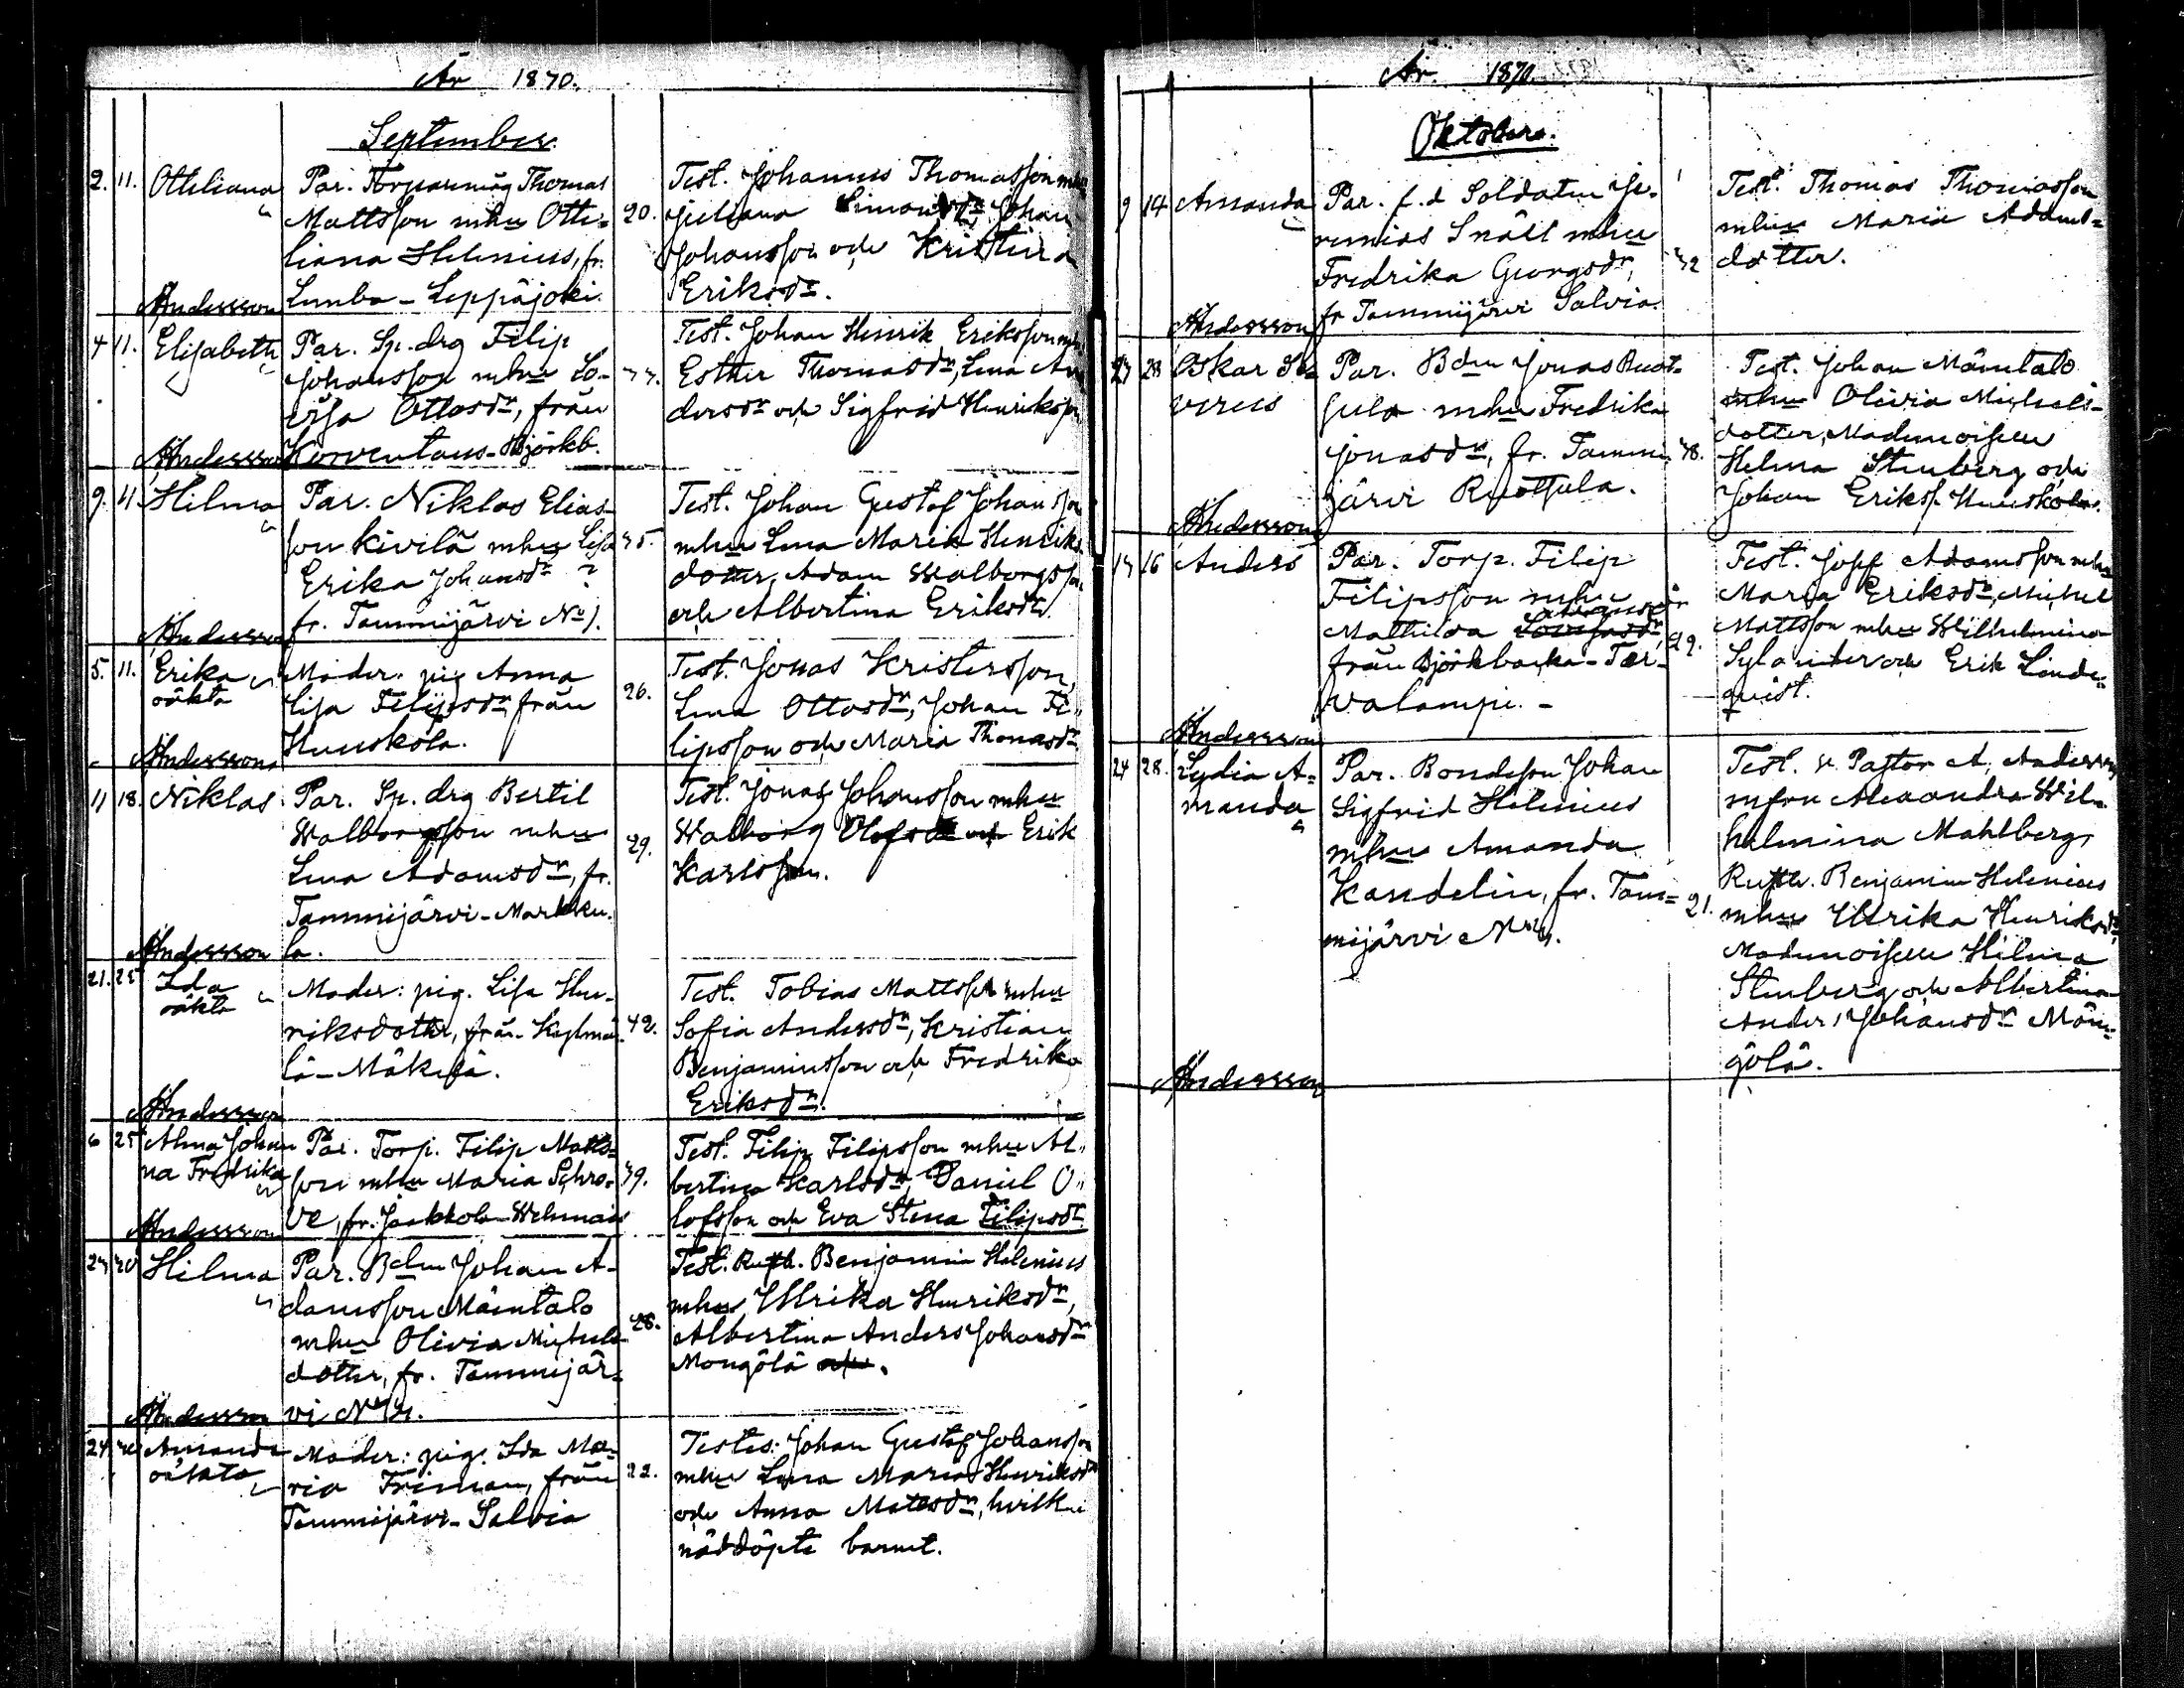 År 1870.
September
2. 11. Otheliana Par. Torparemåg Thomas
Mattsson mhu Othe-
liana Helenius, fr.
Lumba-Leppäjoki.
Andersson
20.
Test. Johannes Thomasson mhu
Juliana Simonsdr, Johan
Johansson och Kristina
Eriksdr.
4 11. Elisabeth Par. Sp.drg Filip
Johansson mhu Lo-
visa Ottosdr, från
Korventaus-Björkb.
Andersson
Test. Johan Henrik Eriksson mhu
Esther Thomasdr, Lena An
dersdr och Sigfrid Henriksson
9. 11. Hilma Par. Niklas Elias-
son Kivelä mhu Lisa
Erika Johansdr
fr. Tammijärvi No 1.
Andersson
35.
Test. Johan Gustaf Johansson
mhu Lena Maria Henriks
dotter, Adam Walborgsson
och Albertina Eriksdr.
5. 11. Erika
oäkta
Moder. pig Anna
Lisa Filipsdr från
Huuskola.
Andersson
26.
Test. Jonas Kristersson,
Lena Ottosdr, Johan Fi-
lipsson och Maria Thomasdr
11 18. Niklas Par. Sp. drg Bertil
Walborgsson mhu
Lena Adamsdr, fr.
Tammijärvi-Markku-
la.
Andersson
29.
Test. Jonas Johansson mhu
Walborg Olofsdr och Erik
Karlsson.
21. 25 Ida
oäkta
Moder: pig. Lisa Hen-
riksdotter, från Kylmä-
lä-Mäkelä.
Andersson
42.
Test. Tobias Mattsson mhu
Sofia Andersdr, Kristian
Benjaminsson och Fredrika
Eriksdr.
6 25 Alma Johan
na Fredrika
Par. Torp. Filip Matts-
son mhu Maria Schro-
ve, fr. Jaakkola-Wehmais
Andersson
39.
Test. Filip Filipsson mhu Al-
bertina Karlsdr, Daniel O-
lofsson och Eva Stina Filipsdr.
Hilma Par. Bdn Johan A-
damsson Mäentalo
mhu Olivia Michels-
dotter, fr. Tammijär-
vi No 4.
Andersson
28.
Test. Rusth. Benjamin Helenius
mhu Ullrika Henriksdr,
Albertina Anders Johansdr
Mongölä och.
24 Amanda
oäkta
Moder: pig. Ida Ma-
ria Friman, från
Tammijärvi-Salvia
22.
Testes: Johan Gustaf Johansson
mhu Lena Maria Henriksdr
och Anna Mattsdr, hvilken
nöddöpte barnet.
År 1870.
Oktober.
9 14 Amanda Par. f.d Soldaten Je-
remias Snäll mhu
Fredrika Georgsdr,
fr Tammijärvi Salvia.
Andersson
32
Test. Thomas Thomasson
mhu Maria Adams-
dotter.
28 Oskar Se-
verus
Par. Bdn Jonas Ruot-
sula mhu Fredrika
Jonasdr, fr. Tammi-
järvi Ruotsula.
Andersson
38.
Test. Johan Mäentalo
mhu Olivia Michels-
dotter, Mademoiselle
Helma Stenberg och
Johan Erikss. Huuskola.
16 Anders Par. Torp. Filip
Filipsson mhu
Mathilda
från Björkbacka-Ter-
valampi.
Andersson
29.
Test. Josef Adamsson mhu
Maria Eriksdr, Michel
Mattsson mhu Wilhelmina
Sylander och Erik Linde-
qvist.
24 28. Lydia A-
manda
Par. Bondeson Johan
Sigfrid Helenius
mhu Amanda
Kandelin, fr. Tam-
mijärvi No 4.
Andersson
21.
Test. v. Pastor A. Andersson
m fru Alexandra Wil-
helmina Mahlberg,
Rusth. Benjamin Helenius
mhu Ullrika Henriksdr,
Mademoiselle Hilma
Stenberg och Albertina
Anders Johansdr Mön-
gölä.